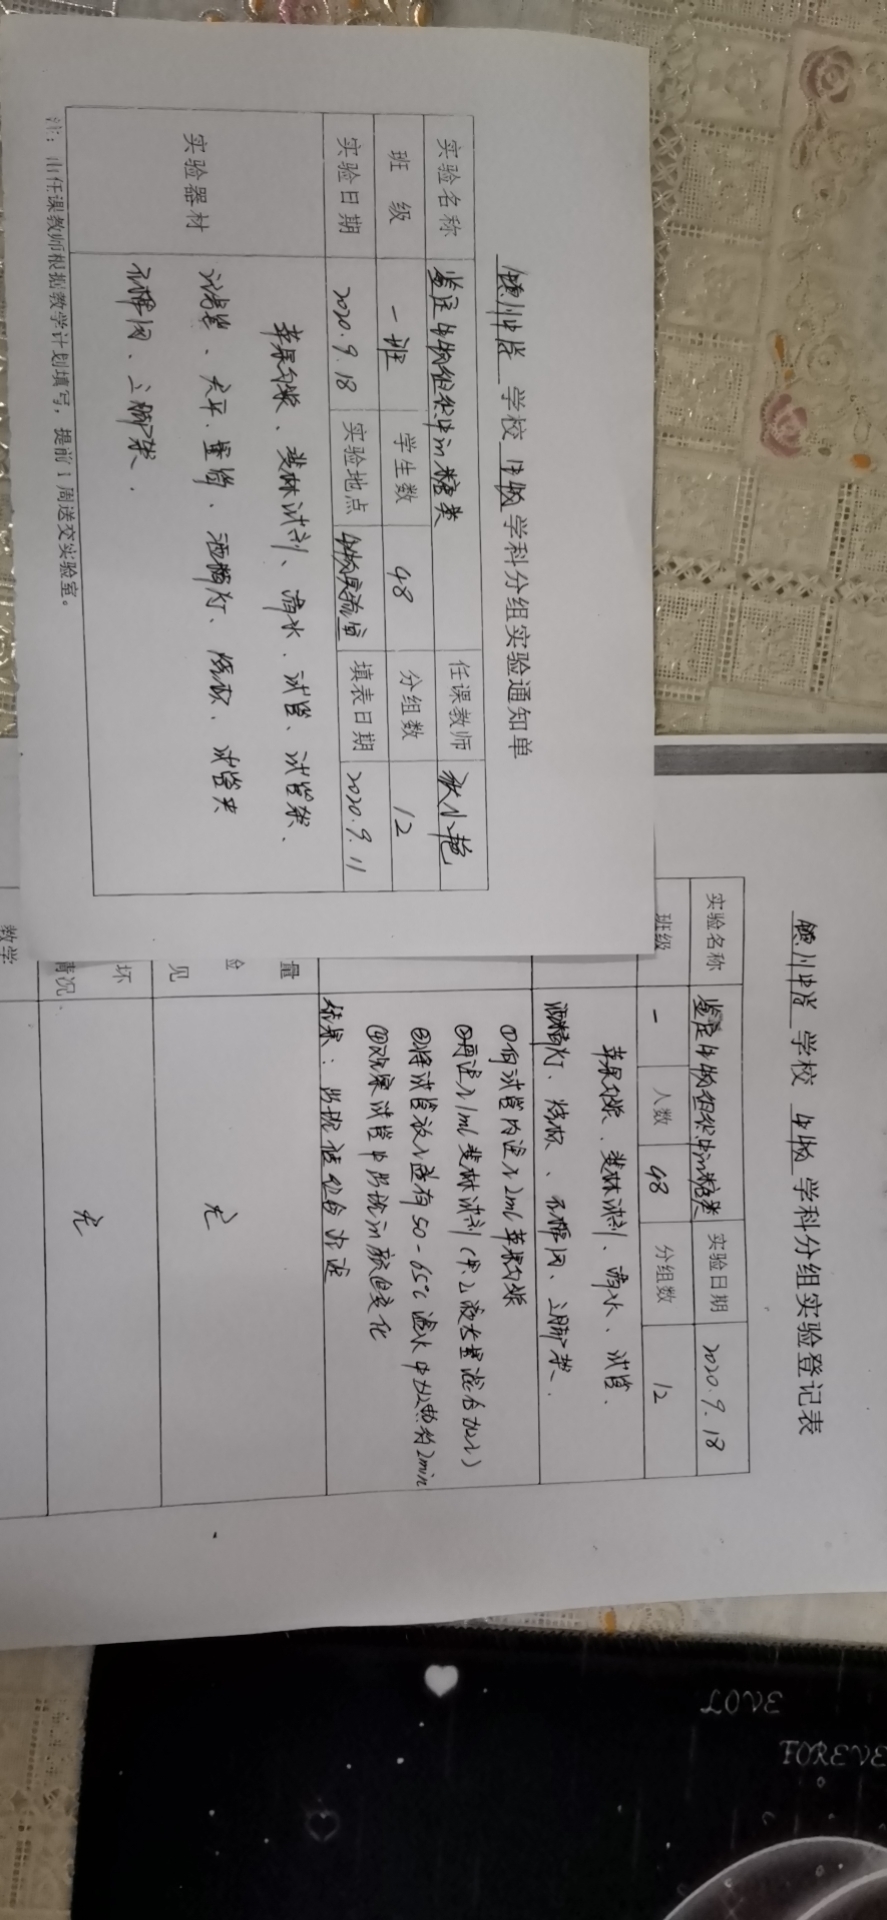 学校 生物 学科分组实验通知单
实验名称 鉴定生物组织中的糖类 任课教师
班级 一班 学生数 48 分组数 12
实验日期 2020.9.18 实验地点 生物实验室 填表日期 2020.9.11
实验器材
苹果匀浆、斐林试剂、清水、试管、试管架、
滴管、天平、量筒、酒精灯、烧杯、试管夹
石棉网、三脚架、
注：由任课教师根据教学计划填写，提前1周送交实验室。
学校 生物 学科分组实验登记表
实验名称 鉴定生物组织中的糖类 实验日期 2020.9.18
班级 一 人数 48 分组数 12
苹果匀浆、斐林试剂、清水、试管、
酒精灯、烧杯、石棉网、三脚架、
①向试管内注入2ml苹果匀浆
②再注入1ml斐林试剂(甲乙液等量混合加入)
③将试管放入盛有50-65℃温水中加热约2min
④观察试管中出现的颜色变化
结果：出现砖红色沉淀
量
验
见
无
坏
情况
无
教学
LOVE
FOREVE